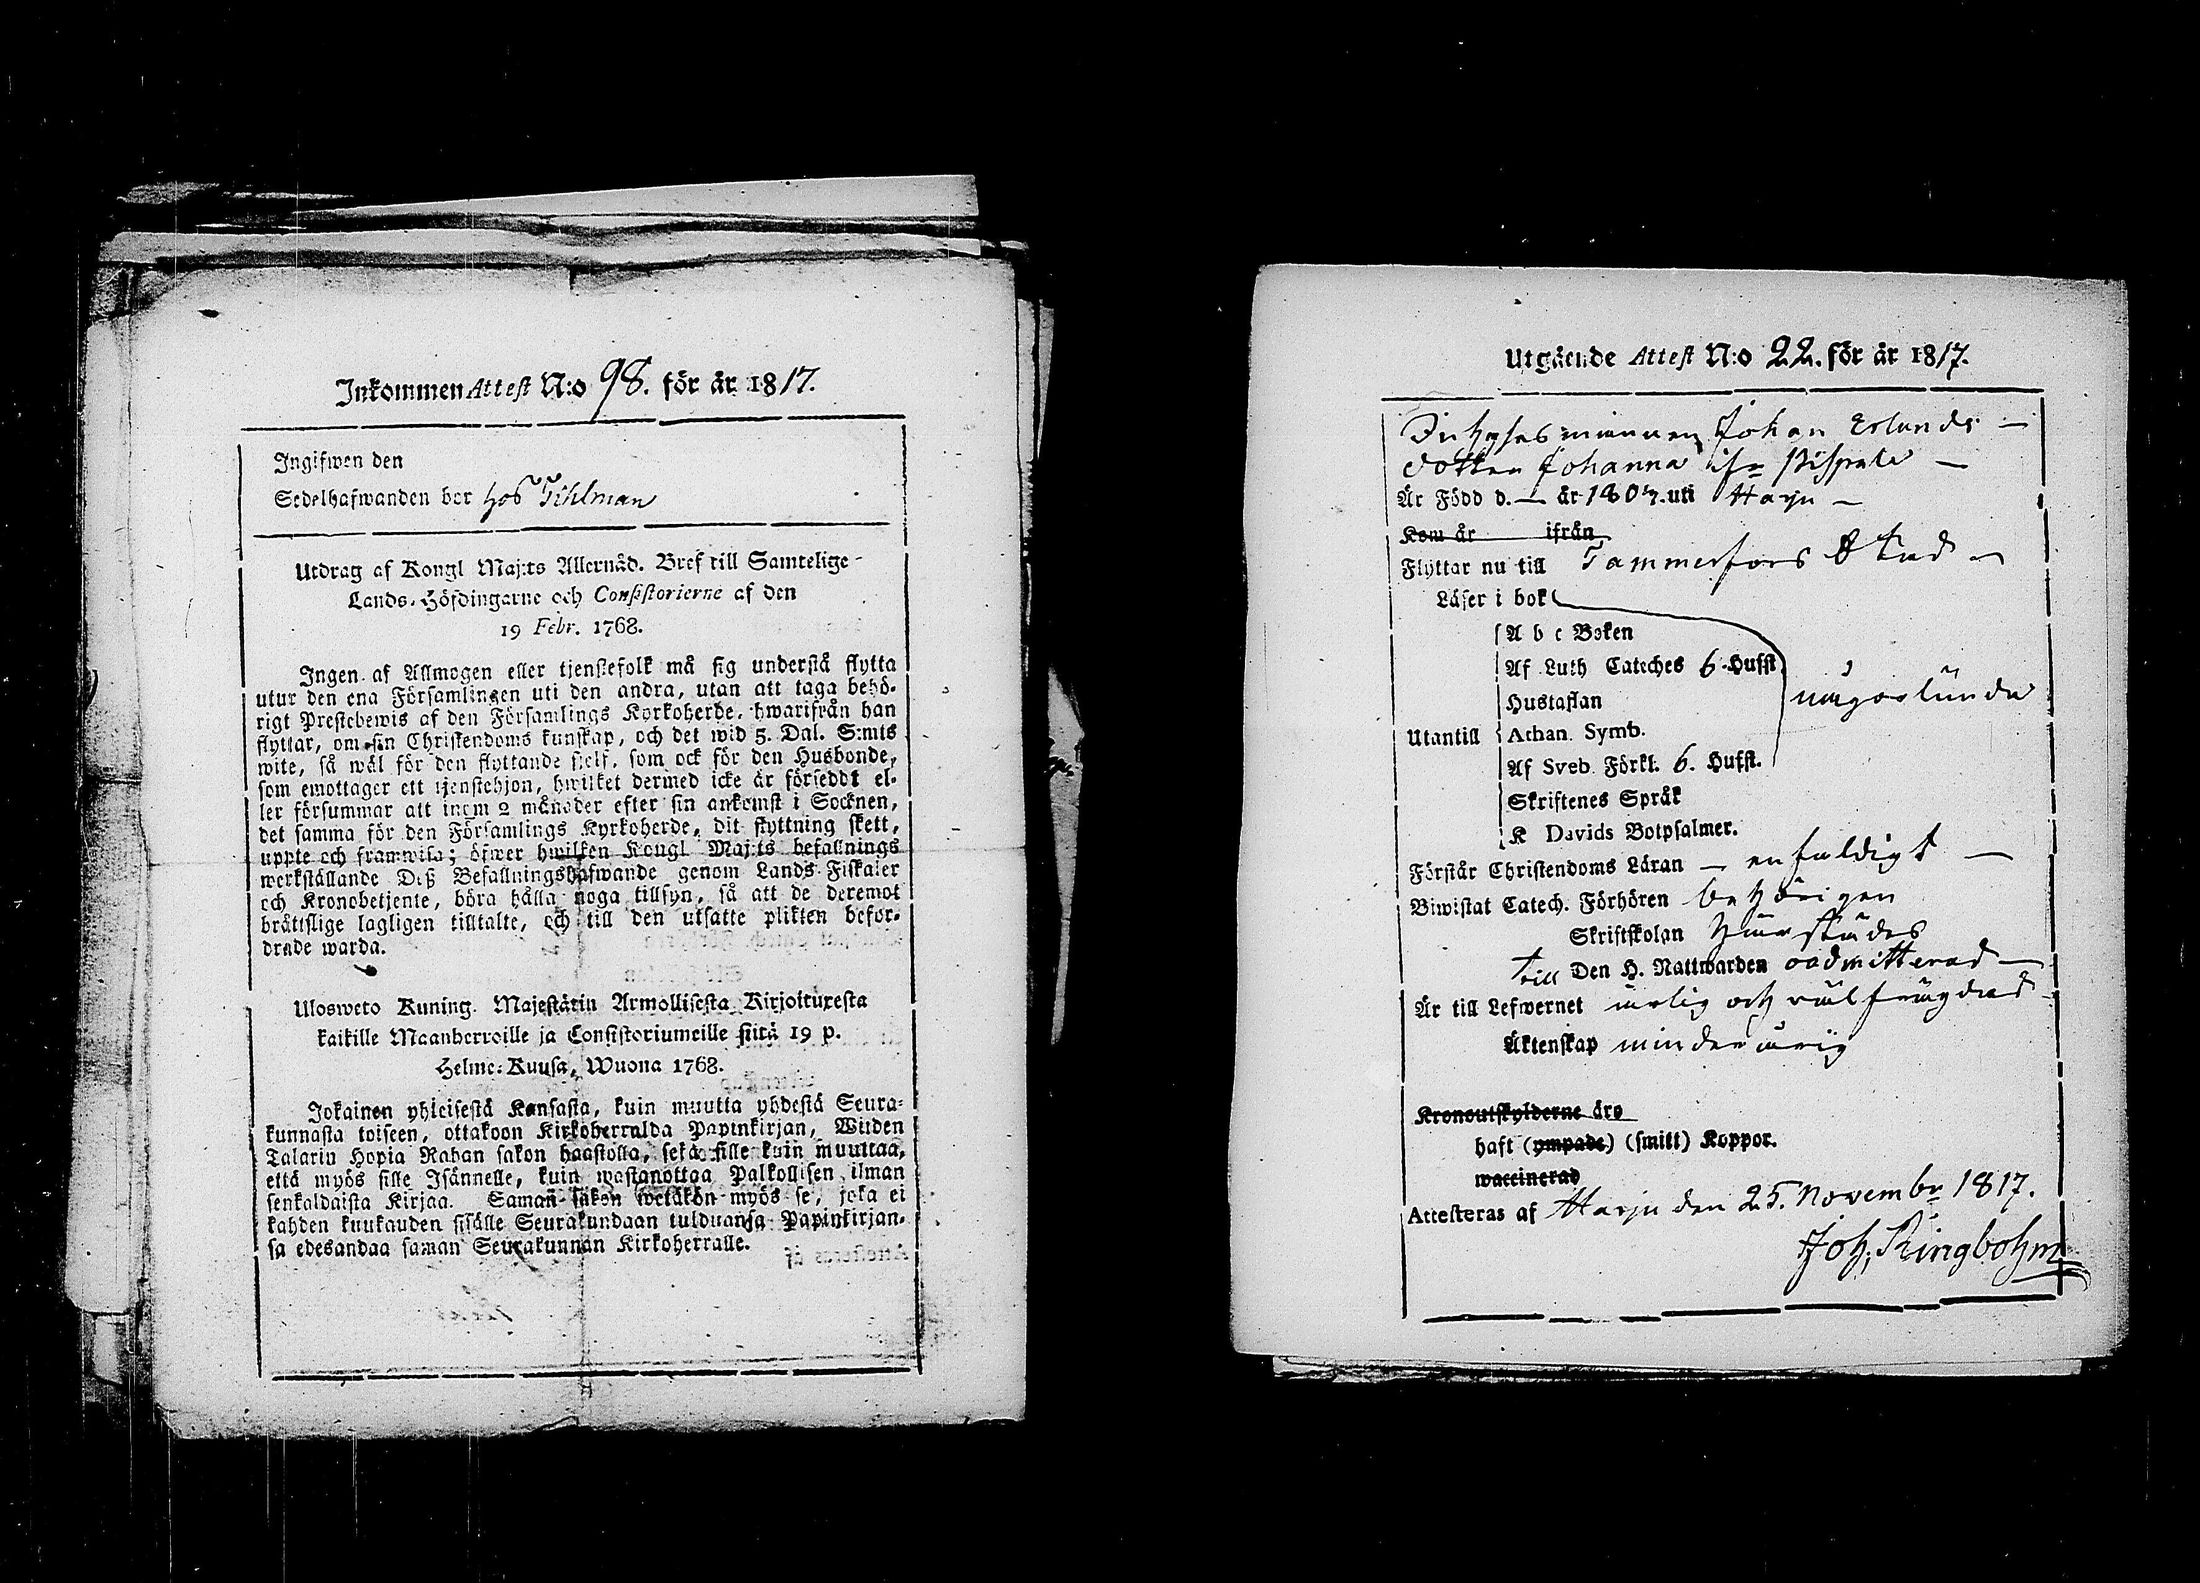 Inkommen Attest N:o 98. för år 1817.
Ingifwen den
Sedelhafwanden bor hos Tihlman
Utdrag af Kongl Maj:ts Allernåd. Bref till Samtelige
Lands-Höfdingarne och Consistorierne af den
19 Febr. 1768.
Ingen af Allmogen eller tjenstefolk må sig understå flytta
utur den ena Församlingen uti den andra, utan att taga behö-
rigt Prestebewis af den Församlings Kyrkoherde, hwarifrån han
flyttar, om sin Christendoms kunskap, och det wid 5. Dal. S:mts
wite, så wäl för den flyttande sjelf, som ock för den Husbonde,
som emottager ett tjenstehjon, hwilket dermed icke är försedt el-
ler försummar att inom 2 månader efter sin ankomst i Socknen,
det samma för den Församlings Kyrkoherde, dit flyttning skett,
uppte och framwisa; öfwer hwilken Kongl Maj:ts befallnings
werkställande Deß Befallningshafwande genom Lands-Fiskaler
och Kronobetjente, böra hålla noga tillsyn, så att de deremot
bråttslige lagligen tilltalte, och till den utsatte plikten befor-
drade warda.
Ulosweto Kuning. Majestätin Armollisesta Kirjoituxesta
kaikille Maanherroille ja Consistoriumeille siitä 19 p.
Helme-Kuusa, Wuona 1768.
Jokainen yhteisestä Kansasta, kuin muutta yhdestä Seura-
kunnasta toiseen, ottakoon Kirkoherralda Papinkirjan, Wijden
Talarin Hopia Rahan sakon haastolla, sekä sille kuin muuttaa,
että myös sille Isännelle, kuin wastanottaa Palkollisen ilman
senkaldaista Kirjaa. Saman sakon wetäkön myös se, joka ei
kahden kuukauden sisälle Seurakundaan tulduansa Papinkirjan-
sa edesandaa saman Seurakunnan Kirkoherralle.
Utgående Attest N:o 22. för år 1817.
Inhyses mannen Johan Erlunds
dotter Johanna ifr Pispala
Är Född d. — år 1807. uti Harju
Kom år ifrån
Flyttar nu till Tammerfors Stad
Läser i bok
A b c Boken
Af Luth Cateches 6 Hufst
Hustaflan någorlunda
Utantill Athan. Symb.
Af Sveb. Förkl. 6. Hufst.
Skriftenes Språk
K Davids Botpsalmer.
Förstår Christendoms Läran — enfaldigt —
Biwistat Catech. Förhören behörigen
Skriftskolan
till Den H. Nattwarden oadmitterad —
Är till Lefwernet ärlig och välfrägdad
Äktenskap minderårig
Kronoutskylderne äro
haft (ympade) (smitt) Koppor.
waccinerad
Attesteras af Harju den 25. Novembr 1817.
Joh. Ringbohm